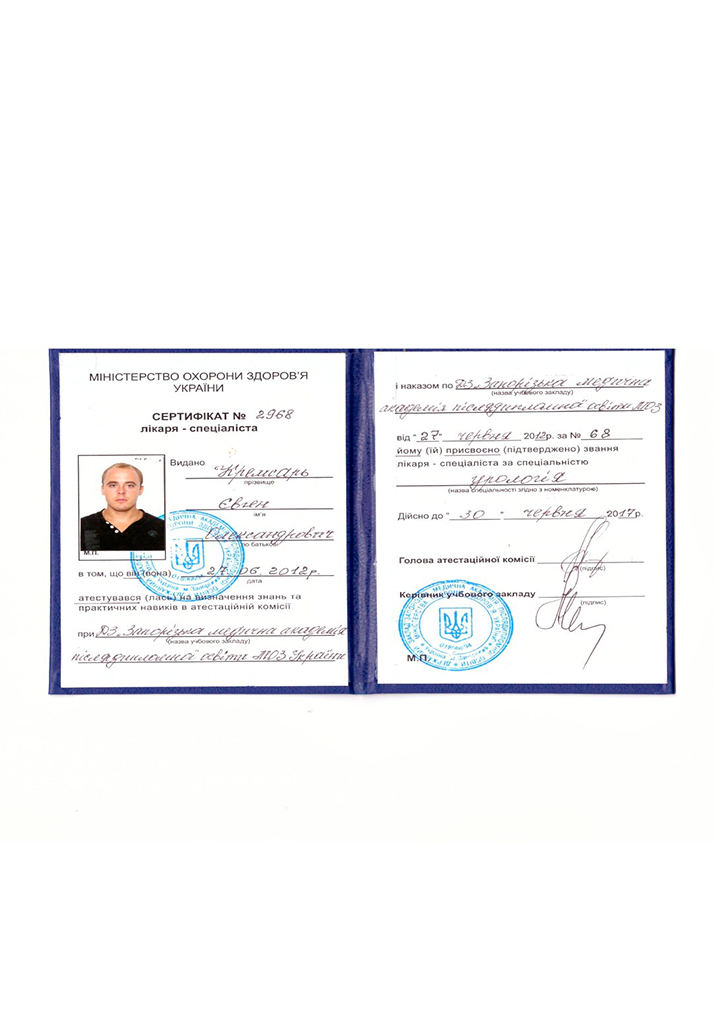 МІНІСТЕРСТВО ОХОРОНИ ЗДОРОВ'Я
УКРАЇНИ
СЕРТИФІКАТ № 2968
лікаря - спеціаліста
Видано Кремсарь
прізвище
Євген
ім'я
Олександрович
по батькові
М.П.
в том, що він (вона) 27.06.2012р.
дата
атестувався (лась) на визначення знань та
практичних навиків в атестаційній комісії
при ДЗ,,Запорізька медична академія
(назва учбового закладу)
післядипломної освіти МОЗ України
і наказом по ДЗ,,Запорізька медична
(назва учбового закладу)
академія післядипломної освіти МОЗ
від "27" червня 2012р. за № 68
йому (їй) присвоєно (підтверджено) звання
лікаря - спеціаліста за спеціальністю
урологія
(назва спеціальності згідно з номенклатурою)
Дійсно до "30" червня 2017р.
Голова атестаційної комісії
(підпис)
Керівник учбового закладу
(підпис)
М.П.